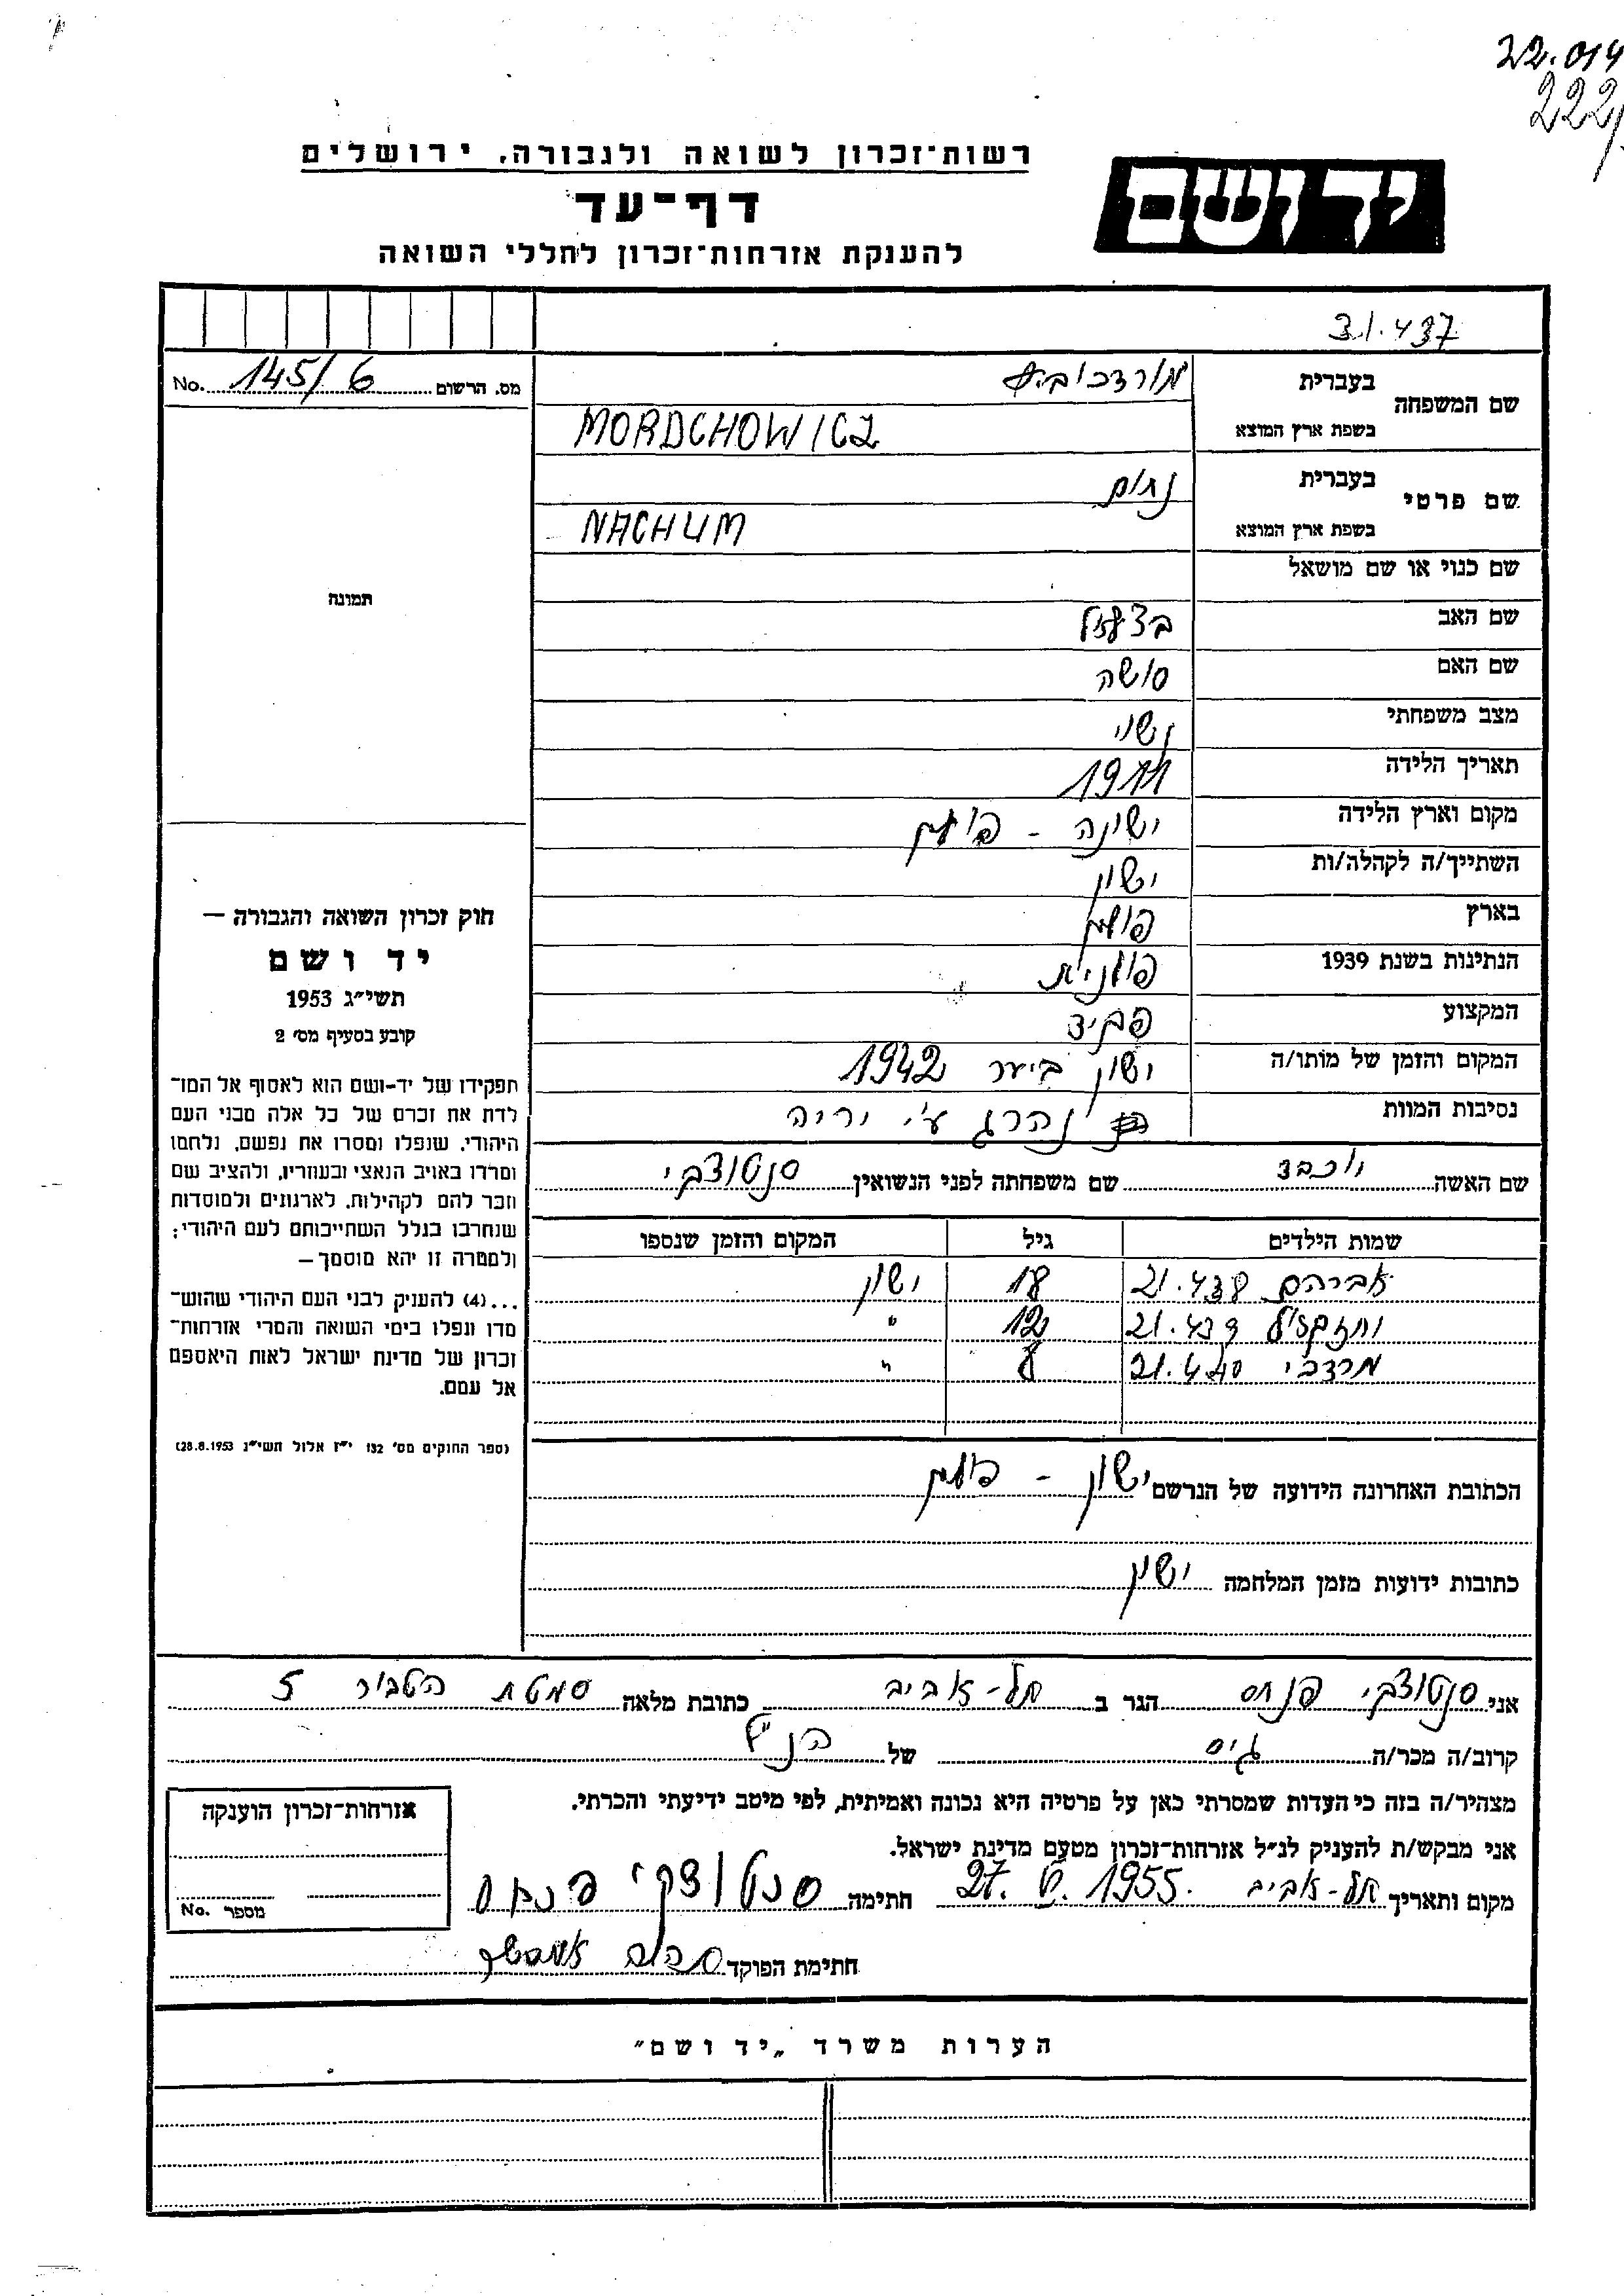 22.014
222/
רשות־זכרון לשואה ולגבורה, ירושלים
יד ושם
דף־עד
להענקת אזרחות־זכרון לחללי השואה
31.437
מס. הרשום 145/6 No.
שם המשפחה
בעברית מורדכוביץ
בשפת ארץ המוצא MORDCHOWICZ
שם פרטי
בעברית נחום
בשפת ארץ המוצא NACHUM
תמונה
שם כנוי או שם מושאל
שם האב בצלאל
שם האם סושה
מצב משפחתי נשוי
תאריך הלידה 1911
מקום וארץ הלידה ישינה - פולין
השתייך/ה לקהלה/ות ישין
בארץ פולין
הנתינות בשנת 1939 פולנית
המקצוע פקיד
המקום והזמן של מותו/ה ישין ביער 1942
נסיבות המוות נהרג ע"י יריה
שם האשה יוכבד שם משפחתה לפני הנשואין סנטוצקי
שמות הילדים גיל המקום והזמן שנספו
אברהם 21.438 18 ישין
יחזקאל 21.439 12 "
מרדכי 21.440 8 "
הכתובת האחרונה הידועה של הנרשם ישין - פולין
כתובות ידועות מזמן המלחמה ישין
חוק זכרון השואה והגבורה —
יד ושם
תשי״ג 1953
קובע בסעיף מס׳ 2
תפקידו של יד-ושם הוא לאסוף אל המו־
לדת את זכרם של כל אלה מבני העם
היהודי, שנפלו ומסרו את נפשם, נלחמו
ומרדו באויב הנאצי ובעוזריו, ולהציב שם
וזכר להם לקהילות, לארגונים ולמוסדות
שנחרבו בגלל השתייכותם לעם היהודי;
ולמטרה זו יהא מוסמך —
...(4) להעניק לבני העם היהודי שהוש־
מדו ונפלו בימי השואה והמרי אזרחות־
זכרון של מדינת ישראל לאות היאספם
אל עמם.
(ספר החוקים מס׳ 132 י״ז אלול תשי״ג 28.8.1953)
אני סנטוצקי פנחס הגר ב תל-אביב כתובת מלאה סמטת הטבור 5
קרוב/ה מכר/ה גיס של הנ"ל
מצהיר/ה בזה כי העדות שמסרתי כאן על פרטיה היא נכונה ואמיתית, לפי מיטב ידיעתי והכרתי.
אני מבקש/ת להעניק לנ״ל אזרחות־זכרון מטעם מדינת ישראל.
מקום ותאריך תל-אביב 27. 6. 1955. חתימה סנטוצקי פנחס
חתימת הפוקד
אזרחות־זכרון הוענקה
מספר No.
הערות משרד „יד ושם״